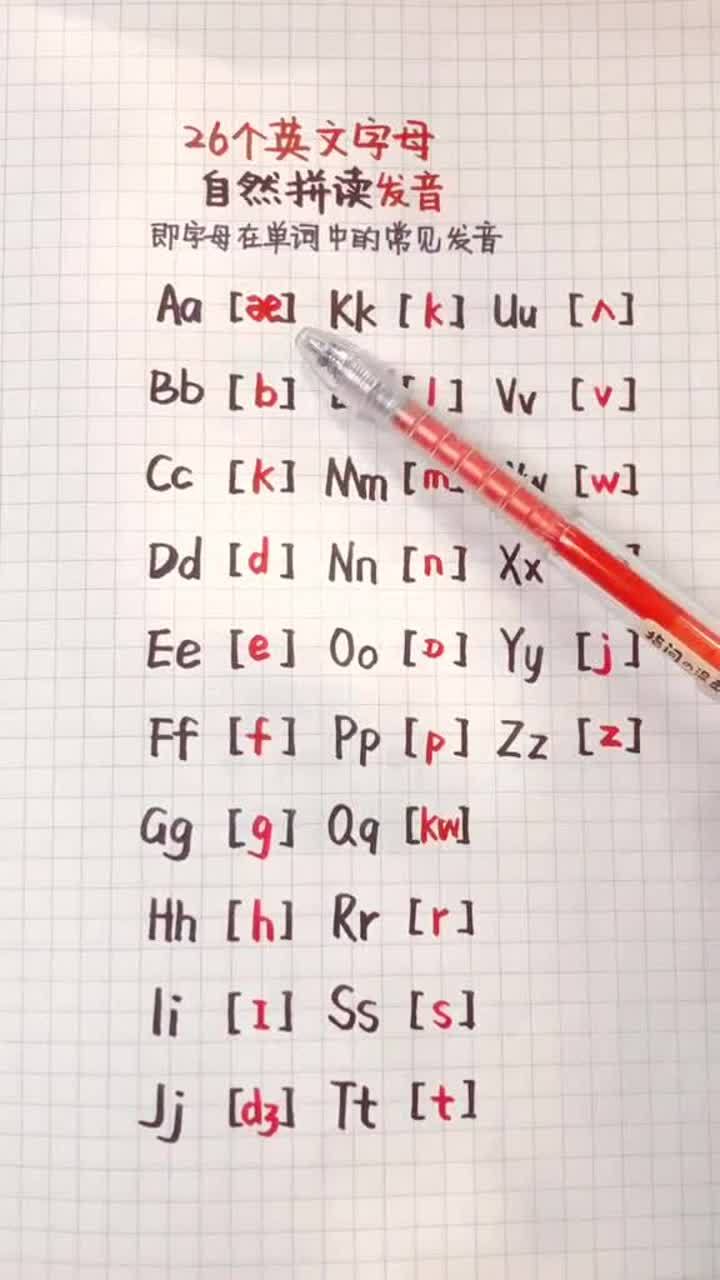 26个英文字母
自然拼读发音
即字母在单词中的常见发音
Aa [æ] Kk [k] Uu [ʌ]
Bb [b] [l] Vv [v]
Cc [k] Mm [m] [w]
Dd [d] Nn [n] Xx
Ee [e] Oo [ɒ] Yy [j]
Ff [f] Pp [p] Zz [z]
Gg [g] Qq [kw]
Hh [h] Rr [r]
Ii [I] Ss [s]
Jj [dʒ] Tt [t]